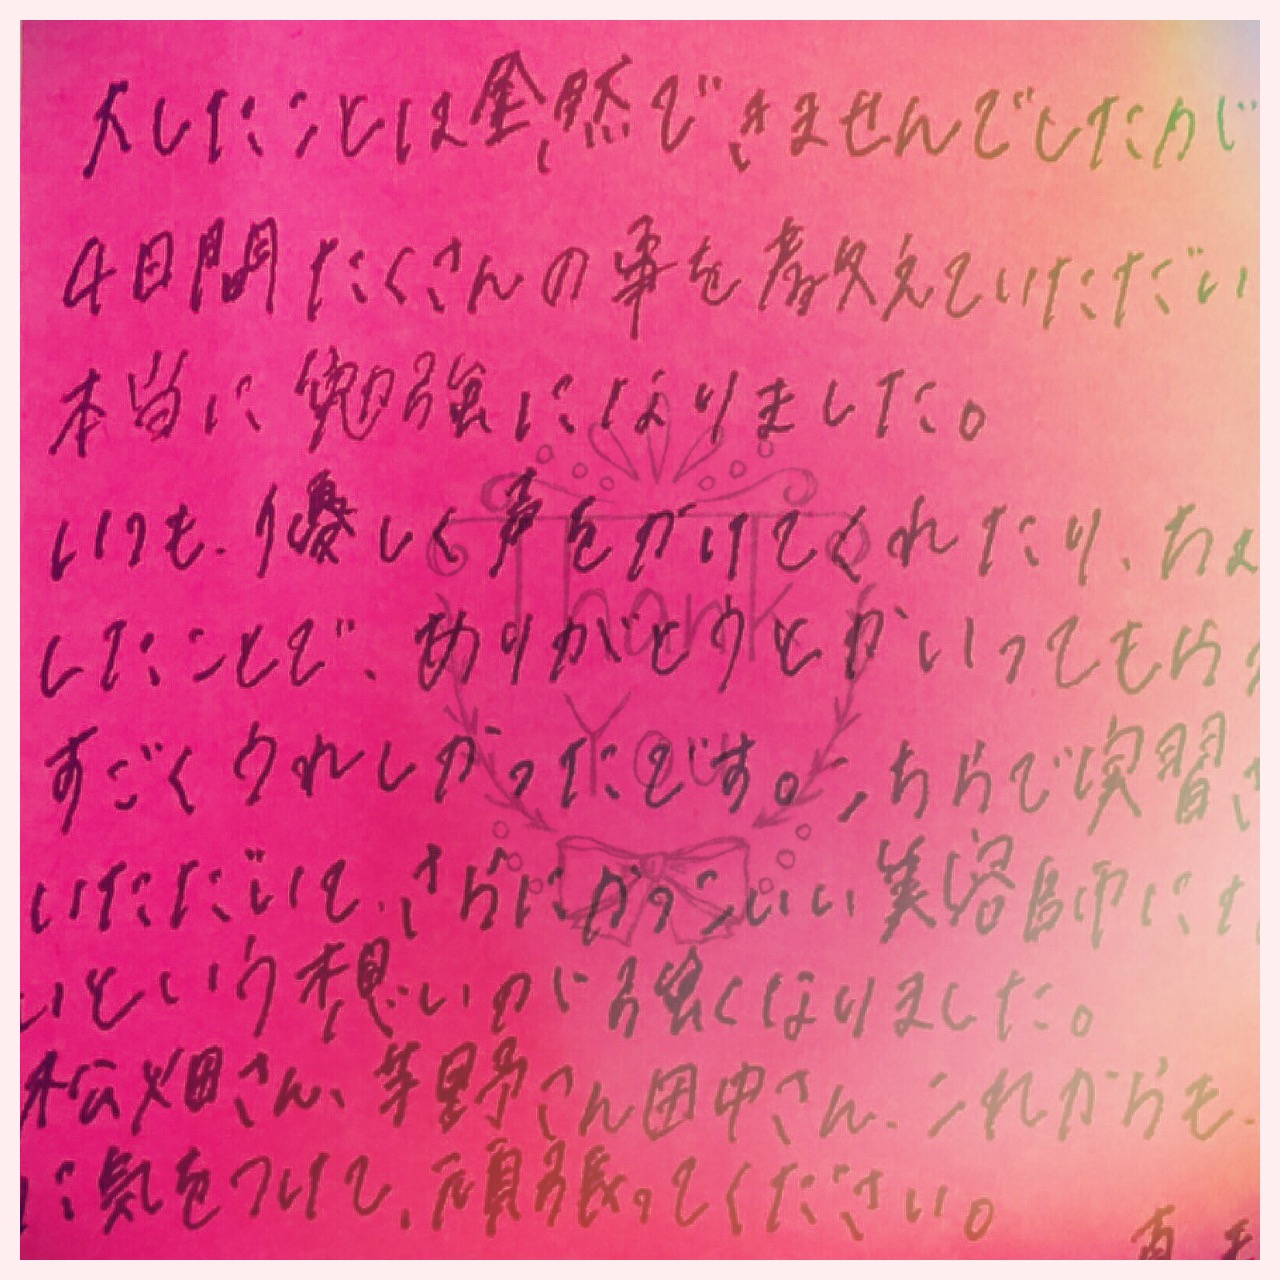 大したことは全然できませんでしたが
4日間たくさんの事を教えていただい
本当に勉強になりました。
いつも、優しく声をかけてくれたり、ちょ
したことで、ありがとうとかいってもらっ
すごくうれしかったです。こちらで実習さ
いただいて、さらにかっこいい美容師にな
いという想いのが強くなりました。
松畑さん、茅野さん田中さん、これからも、
に気をつけて、頑張ってください。
Thank
You